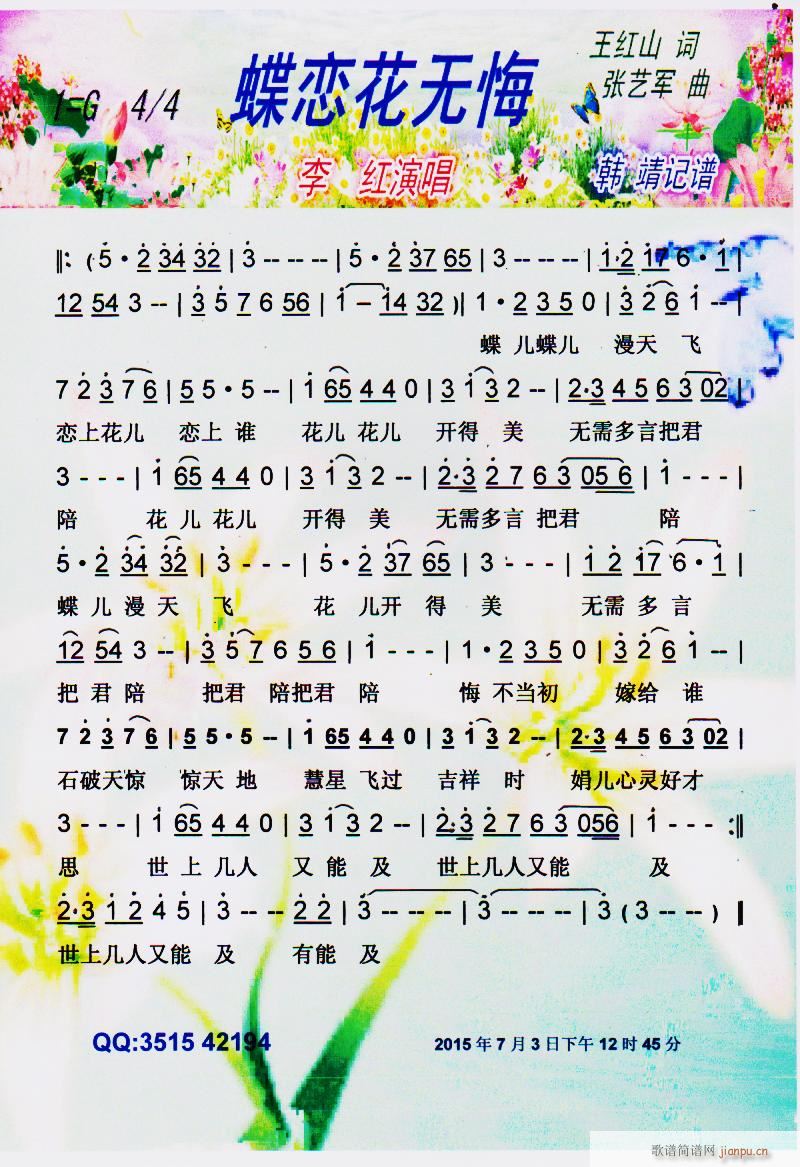 蝶恋花无悔
王红山 词
张艺军 曲
1=G 4/4
李 红演唱
韩 靖记谱
‖: ( 5 · 2 34 32 | 3 -- -- | 5 · 2 37 65 | 3 -- -- | 1·2 17 6 · 1 |
12 54 3 -- | 3 5 7 6 56 | 1 – 14 32 )| 1 · 2 3 5 0 | 3 2 6 1 -- |
蝶 儿蝶儿 漫天 飞
7 2 3 7 6 | 5 5 · 5 -- | 1 65 4 4 0 | 3 1 3 2 -- | 2·3 4 5 6 3 02 |
恋上花儿 恋上 谁 花儿 花儿 开得 美 无需多言把君
3 - - - | 1 65 4 4 0 | 3 1 3 2 -- | 2·3 2 7 6 3 05 6 | 1 - - - |
陪 花 儿 花儿 开得 美 无需多言 把君 陪
5 · 2 34 32 | 3 - - - | 5 · 2 37 65 | 3 - - - | 1 2 17 6 · 1 |
蝶 儿 漫 天 飞 花 儿开 得 美 无需 多 言
12 54 3 -- | 3 5 7 6 5 6 | 1 - - - | 1 · 2 3 5 0 | 3 2 6 1 -- |
把 君 陪 把君 陪把君 陪 悔 不当初 嫁给 谁
7 2 3 7 6 | 5 5 · 5 -- | 1 65 4 4 0 | 3 1 3 2 -- | 2·3 4 5 6 3 02 |
石破天惊 惊天 地 慧星 飞过 吉祥 时 娟儿心灵好才
3 - - - | 1 65 4 4 0 | 3 1 3 2 -- | 2·3 2 7 6 3 056 | 1 - - - :‖
思 世 上 几人 又 能 及 世上几人又能 及
2·3 1 2 4 5 | 3 -- -- 2 2 | 3 -- -- | 3 -- -- | 3 ( 3 -- -- ) ‖
世上几人又能 及 有能 及
QQ:3515 42194
2015 年 7 月 3 日下午 12 时 45 分
歌谱简谱网 jianpu.cn